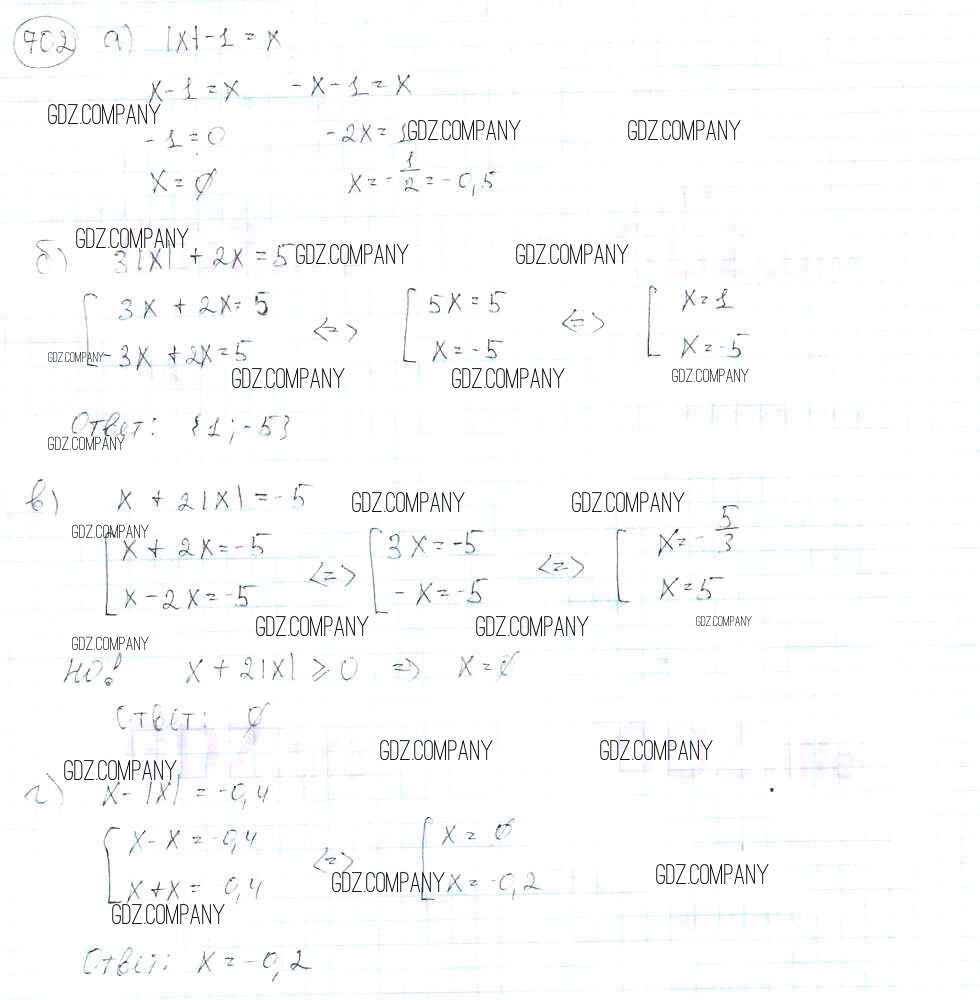 702 а) |x|-1 = x
x-1=x -x-1=x
GDZ.COMPANY
-1=0 -2x=1 GDZ.COMPANY GDZ.COMPANY
x=∅ x=-1/2=-0,5
GDZ.COMPANY
б) 3|x|+2x=5 GDZ.COMPANY GDZ.COMPANY
[3x+2x=5 <=> [5x=5 <=> [x=1
-3x+2x=5 x=-5 x=-5
GDZ.COMPANY GDZ.COMPANY GDZ.COMPANY GDZ.COMPANY
Ответ: {1;-5}
GDZ.COMPANY
в) x+2|x|=-5 GDZ.COMPANY GDZ.COMPANY
GDZ.COMPANY
[x+2x=-5 <=> [3x=-5 <=> [x=-5/3
x-2x=-5 -x=-5 x=5
GDZ.COMPANY GDZ.COMPANY GDZ.COMPANY
GDZ.COMPANY
НО! x+2|x|⩾0 => x=∅
Ответ: ∅
GDZ.COMPANY GDZ.COMPANY
GDZ.COMPANY
г) x-|x|=-0,4
[x-x=-0,4 <=> [x=∅
x+x= 0,4 x=-0,2
GDZ.COMPANY GDZ.COMPANY
GDZ.COMPANY
Ответ: x=-0,2